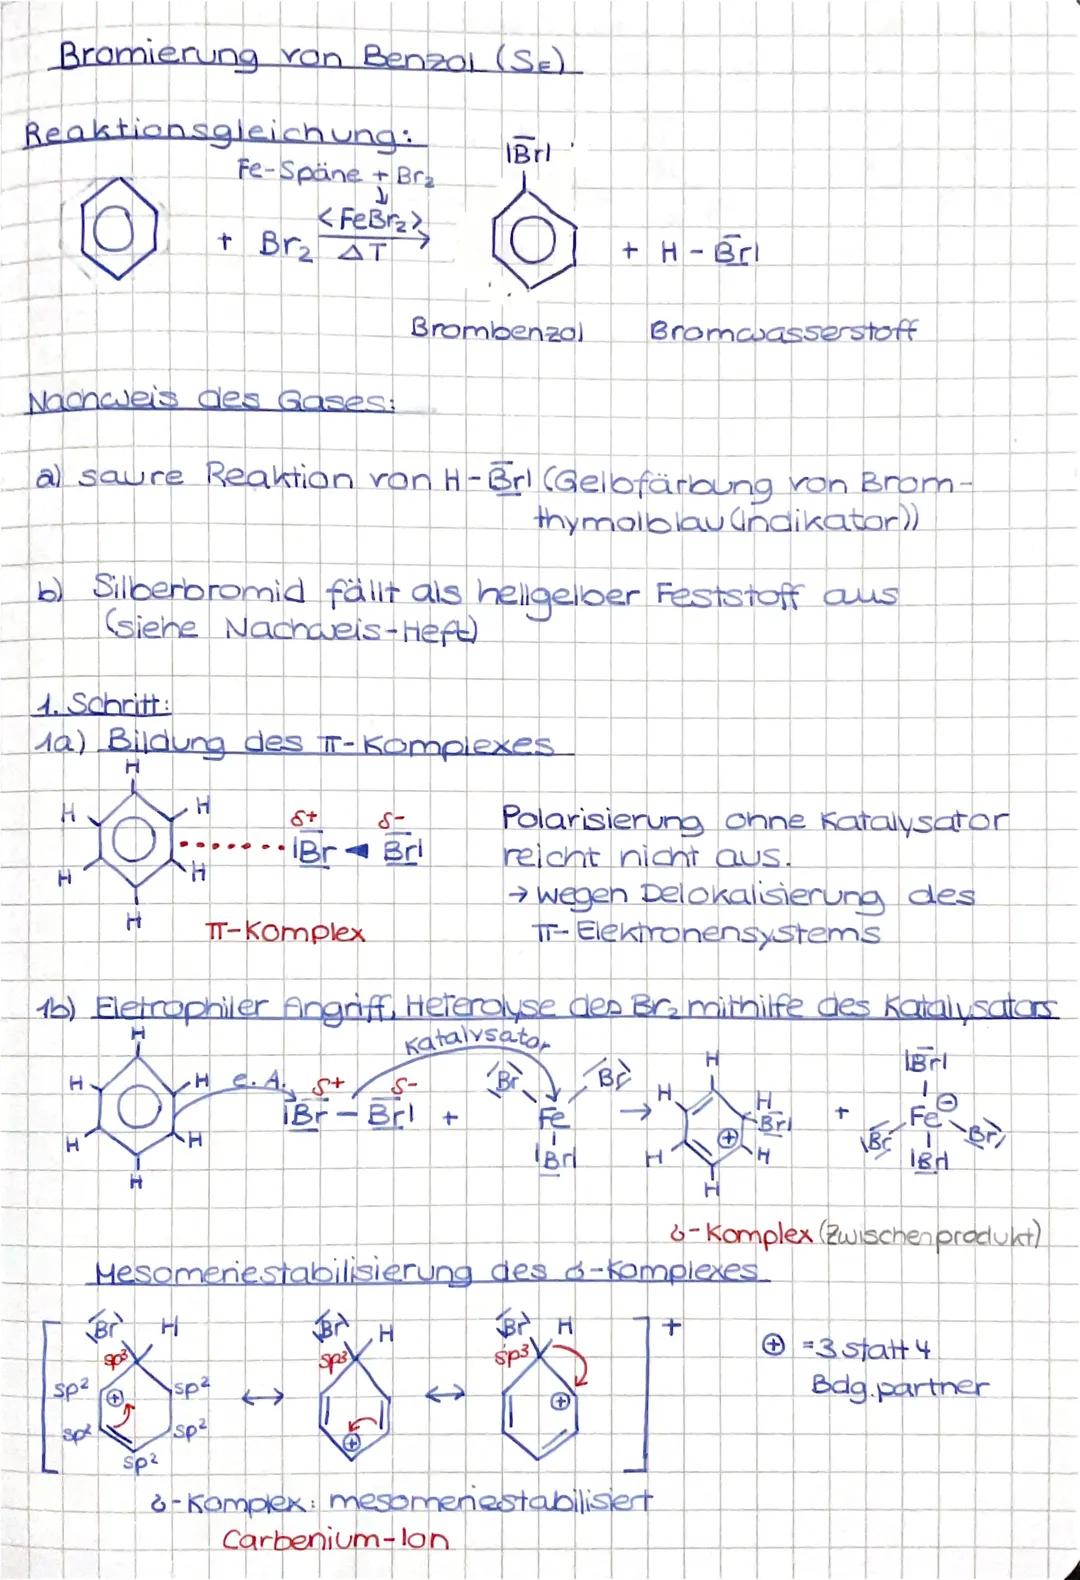 Bromierung von Benzol (SE)
Reaktionsgleichung:
Fe-Späne + Br2
<FeBr2>
+ Br2 ΔT
|Br|
+ H-Br|
Brombenzol Bromwasserstoff
Nachweis des Gases:
a) saure Reaktion von H-Br| (Gelbfärbung von Brom-
thymolblau (Indikator))
b) Silberbromid fällt als hellgelber Feststoff aus
(siehe Nachweis-Heft)
1. Schritt:
1a) Bildung des π-Komplexes
H
H H
δ+ δ-
|Br Br|
H H
H
π-Komplex
Polarisierung ohne Katalysator
reicht nicht aus.
→ wegen Delokalisierung des
π-Elektronensystems
1b) Eletrophiler Angriff, Heterolyse des Br2 mithilfe des Katalysators
Katalysator
H
H H e.A. δ+ δ-
|Br - Br| + Br Br Fe |Br|
H H
H
→
H
H H
Br|
⊕
H H
H
+ |Br| Fe ⊖ |Br Br| |Br|
δ-Komplex (Zwischenprodukt)
Mesomeriestabilisierung des δ-Komplexes
Br H Br H Br H +
sp3 sp3 sp3
sp2 ⊕ sp2 ↔ ↔ ⊕
sp2 sp2 ⊕
sp2
⊕ = 3 statt 4
Bdg.partner
δ-Komplex: mesomeriestabilisiert
Carbenium-Ion